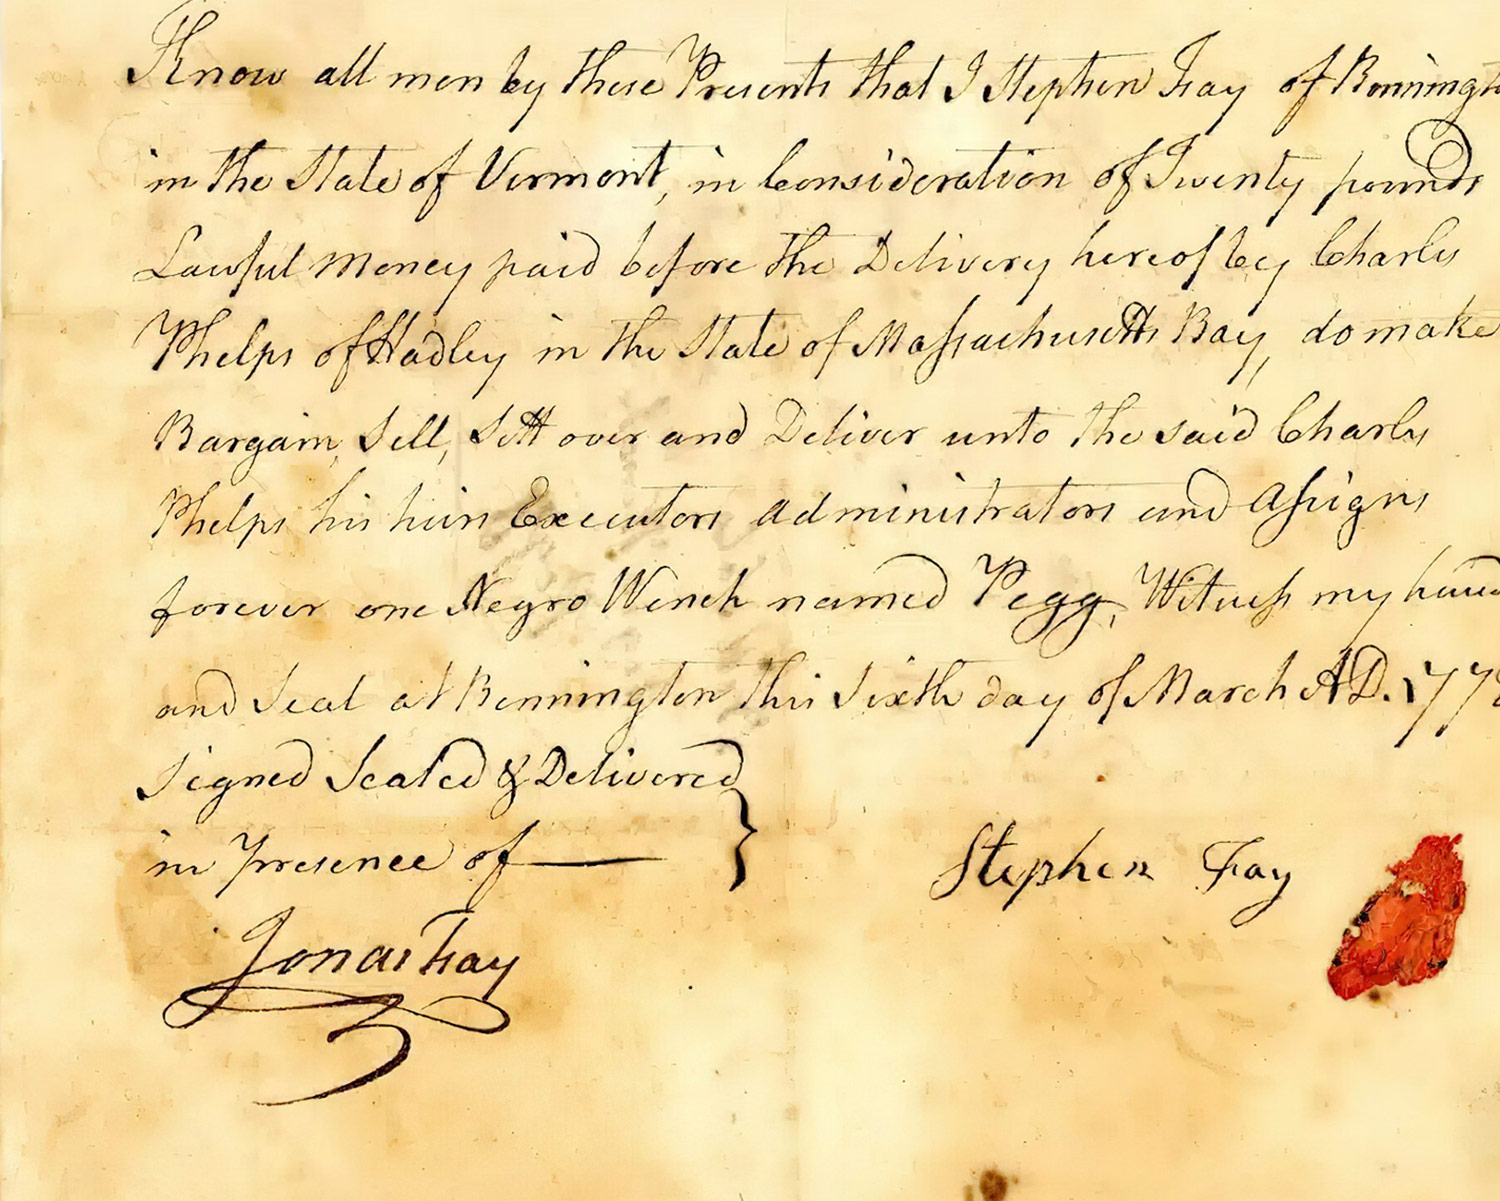 Know all men by these Presents that I Stephen Fay of Benningt
in the State of Vermont, in Consideration of Twenty pounds
Lawful Money paid before the Delivery hereof by Charles
Phelps of Hadley in the State of Massachusetts Bay, do make
Bargain, Sell, Sett over and Deliver unto the said Charles
Phelps his heirs Executors Administrators and Assigns
forever one Negro Wench named Pegg, Witness my hand
and Seal at Bennington this Sixth day of March AD. 1778
Signed Sealed & Delivered
in Presence of
Stephen Fay
Jonas Fay